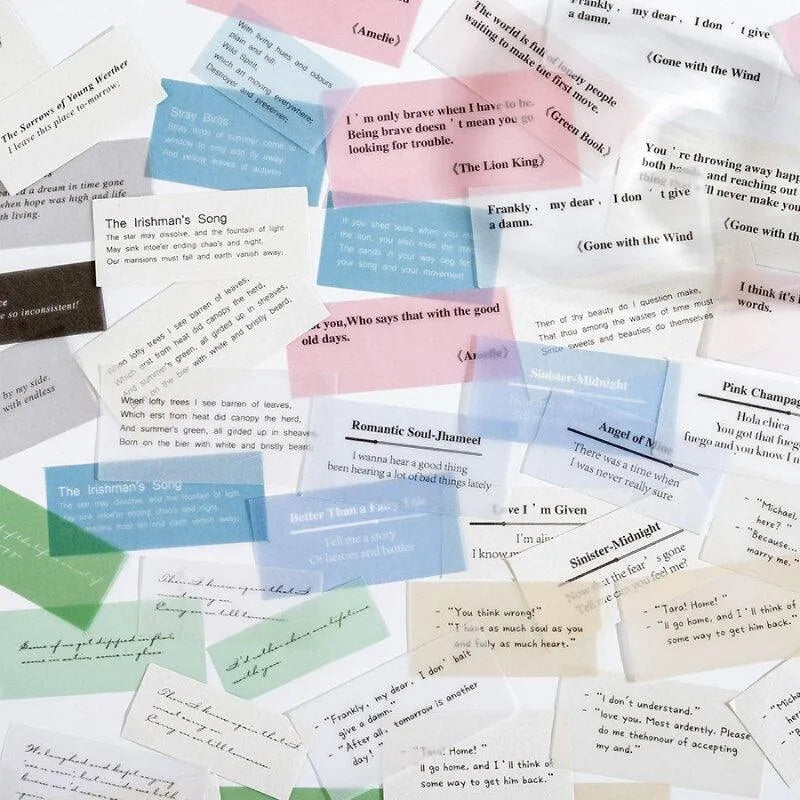 《Amelie》
With living hues and odours
plain and hill:
Wild Spirit,
which art moving everywhere;
Destroyer and preserver;
The world is full of lonely people
waiting to make the first move.
《Green Book》
Frankly, my dear, I don't give
a damn.
《Gone with the Wind
The Sorrows of Young Werther
I leave this place to-morrow.
Stray Birds
Stray birds of summer come to
window to sing and fly away.
And yellow leaves of autumn
I'm only brave when I have to be.
Being brave doesn't mean you go
looking for trouble.
《The Lion King》
You're throwing away happ
both hands, and reaching out
thing that will never make you
《Gone with th
d a dream in time gone
when hope was high and life
th living.
The Irishman's Song
The star may dissolve, and the fountain of light
May sink intoe'er ending chao's and night,
Our mansions must fall and earth vanish away;
If you shed tears when you m
the sun, you also miss the star
The sands in your way beg for
your song and your movement
Frankly, my dear, I don't give
a damn.
《Gone with the Wind
ce
e so inconsistent!
When lofty trees I see barren of leaves,
Which erst from heat did canopy the herd,
And summer's green, all girded up in sheaves,
on the bier with white and bristly beard,
t you,Who says that with the good
old days.
《Amelie》
Then of thy beauty do I question make,
That thou among the wastes of time must
Since sweets and beauties do themselves
I think it's
words.
by my side.
with endless
When lofty trees I see barren of leaves,
Which erst from heat did canopy the herd,
And summer's green, all girded up in sheaves
Born on the bier with white and bristly beard
Sinister-Midnight
Now
Tell me
Pink Champag
Hola chica
You got that fuego
fuego and you know I n
Romantic Soul-Jhameel
I wanna hear a good thing
been hearing a lot of bad things lately
Angel of Mine
There was a time when
I was never really sure
The Irishman's Song
The star may dissolve, and the fountain of light
May sink intoe'er ending chao's and night,
Our mansions must fall and earth vanish away;
Better Than a Fairy Tale
Tell me a story
Of heroes and battles
Love I'm Given
I'm aliv
I know m
Sinister-Midnight
Now that the fear's gone
Tell me can you feel me?
- "Michael,
here?"
- "Because...
marry me."
Then I know again that I
must carry on
Carry on till tomorrow
Some of us get dipped in flat,
some in satin, some in gloss
I'd rather share one lifetime
with you
- "You think wrong!"
- "I have as much soul as you
and fully as much heart."
- "Tara! Home!"
- "ll go home, and I'll think of
some way to get him back."
Then I know again that I
must carry on
Carry on till tomorrow
- "Frankly, my dear, I don't
give a damn."
bait
- "After all, tomorrow is another
day!"
- "I don't understand."
- "love you. Most ardently. Please
do me thehonour of accepting
my and."
- "Micha
her
- "Be
We laughed and kept saying
- "Tara! Home!"
ll go home, and I'll think of
some way to get him back."